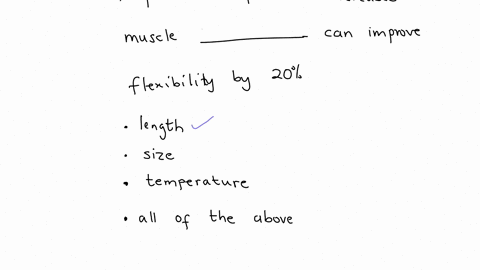 muscle __________ can improve
flexibility by 20%
• length ✓
• size
• temperature
• all of the above